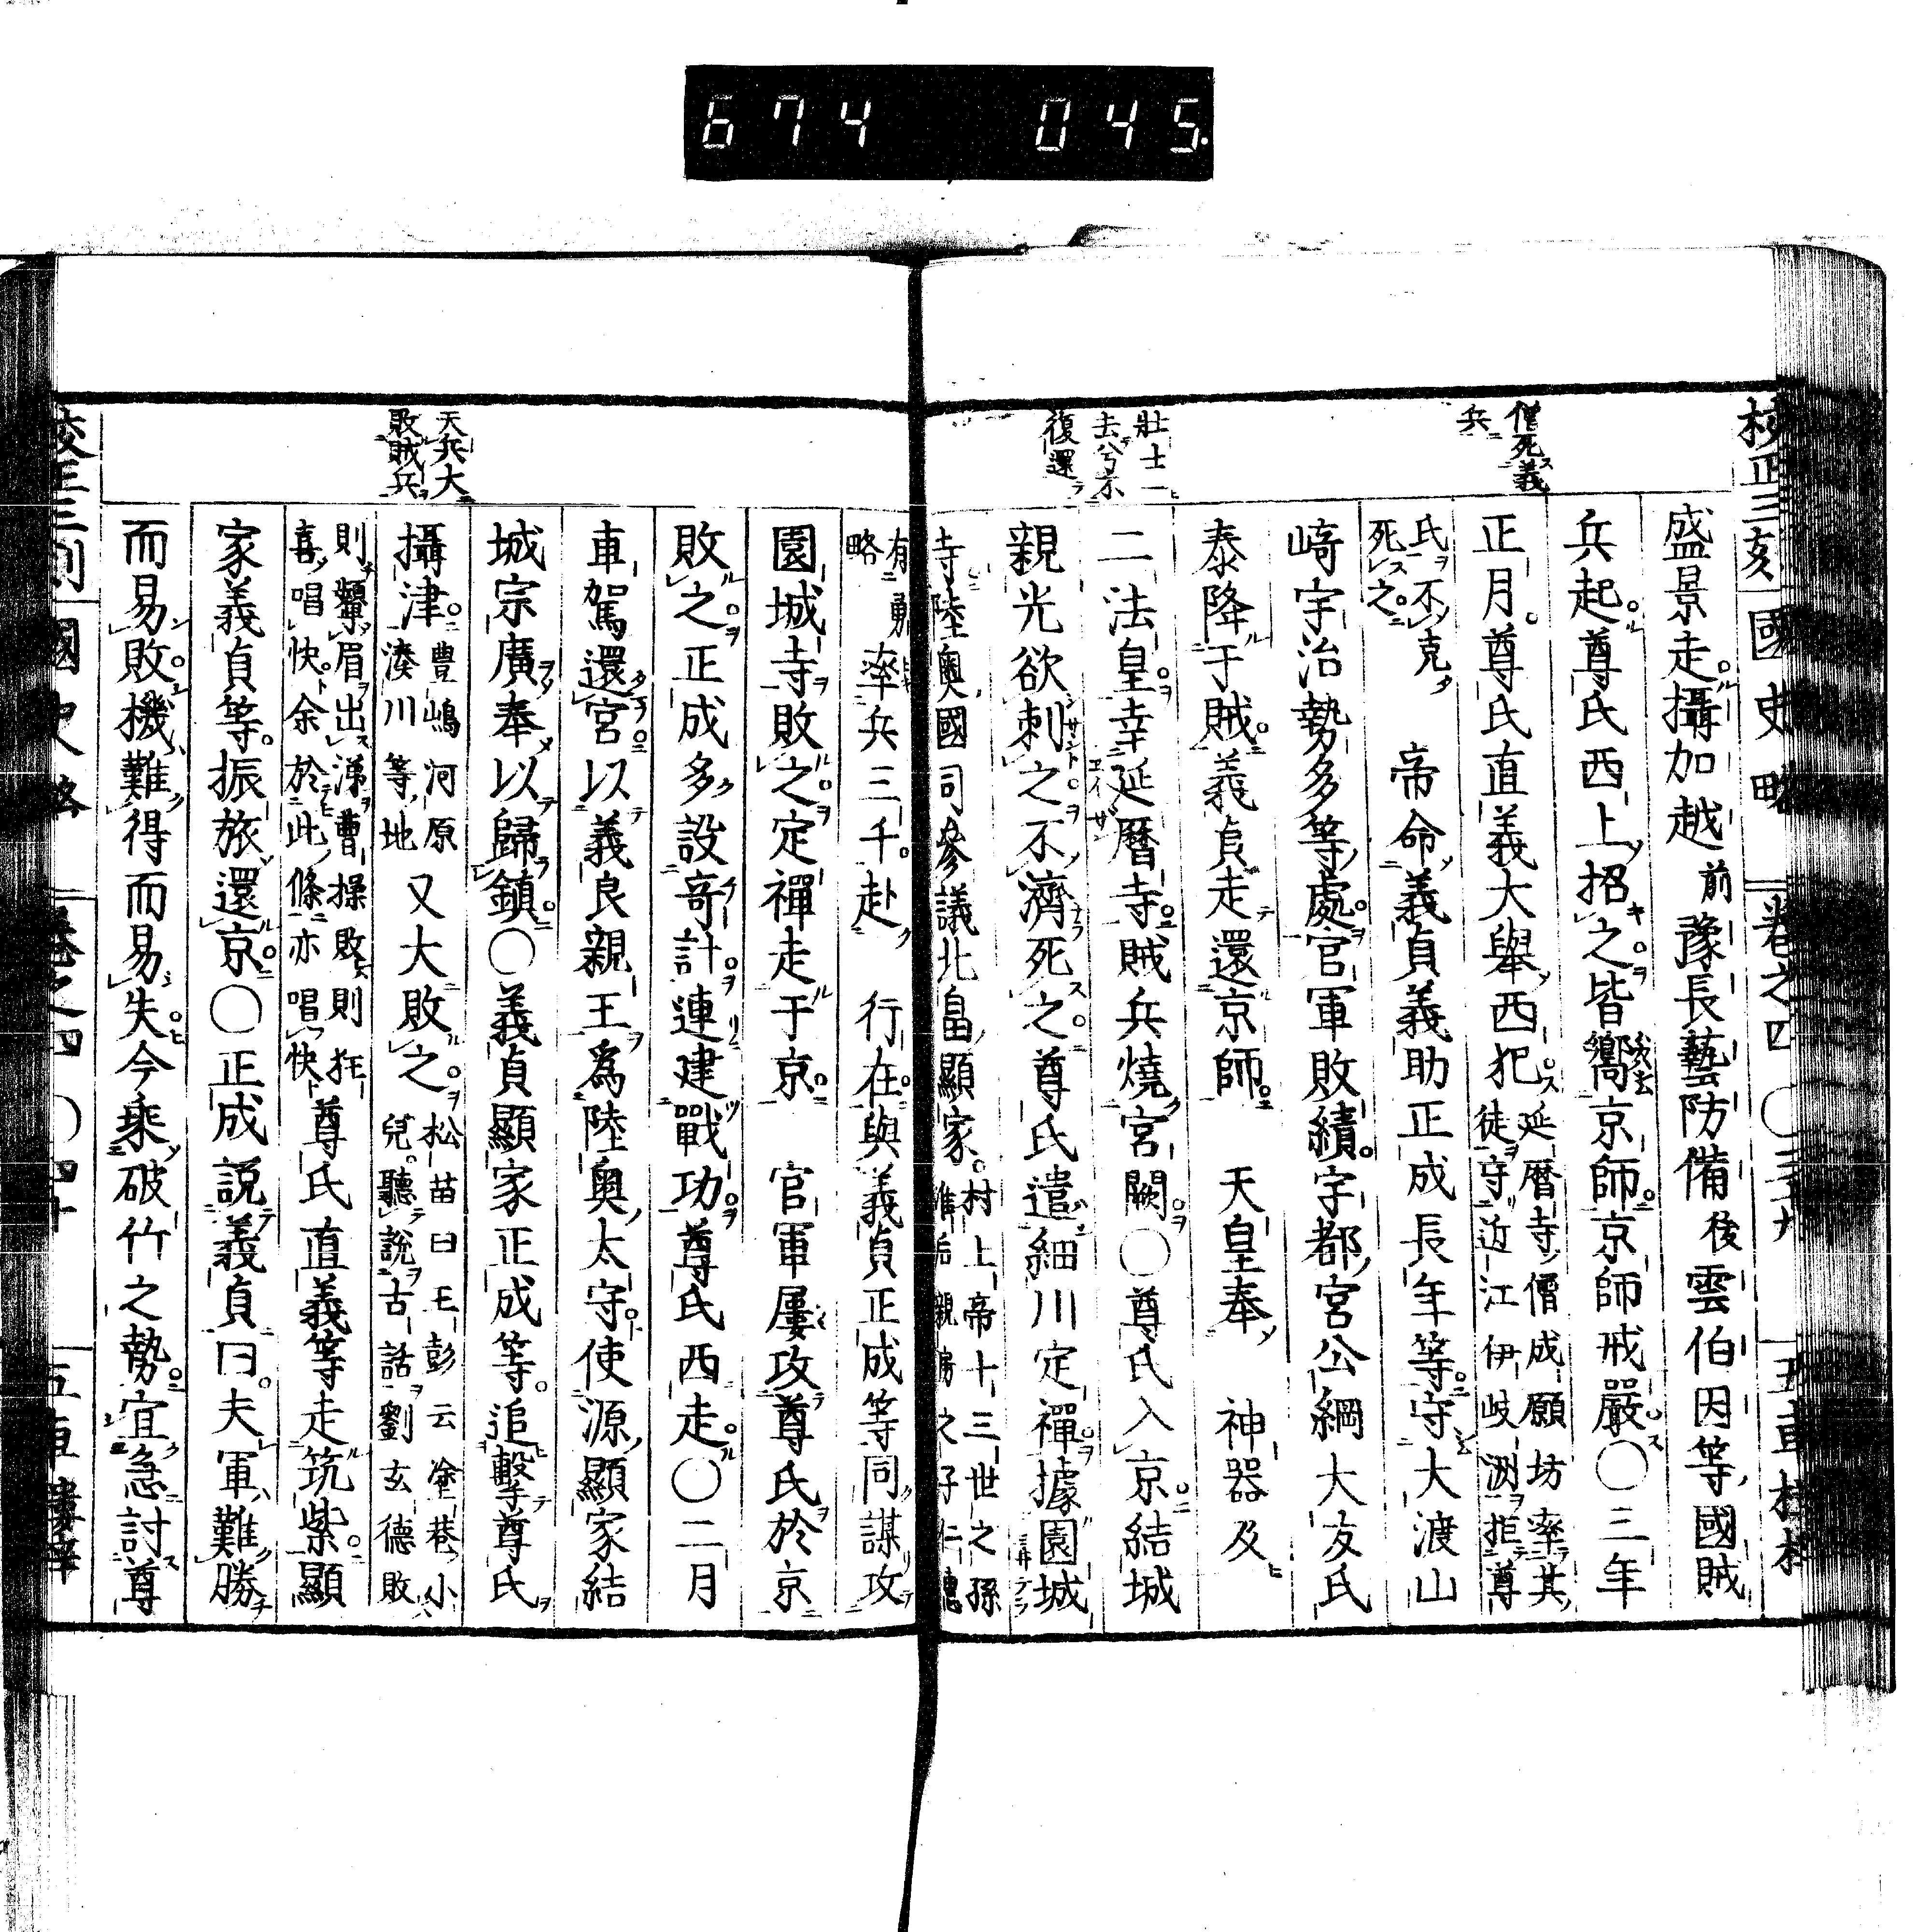 674 045.
校正三刻 國史略 卷之四 〇三十九 五車樓梓
僧死義
兵
壯士一
去兮不
復還
盛景走攝加越前豫長藝防備後雲伯因等國賊
兵起尊氏西上招之皆嚮京師京師戒嚴〇三年
正月尊氏直義大舉西犯延曆寺僧成願坊率其徒守近江伊岐洲拒尊
氏不克死之 帝命義貞義助正成長年等守大渡山
﨑宇治勢多等處官軍敗績宇都宮公綱大友氏
泰降于賊義貞走還京師 天皇奉 神器及
二法皇幸延曆寺賊兵燒宮闕〇尊氏入京結城
親光欲刺之不濟死之尊氏遣細川定禪據園城
寺陸奧國司參議北畠顯家村上帝十三世之孫准后親房之子仁聰
有勇略率兵三千赴 行在與義貞正成等同謀攻
園城寺敗之定禪走于京 官軍屢攻尊氏於京
敗之正成多設竒計連建戰功尊氏西走〇二月
車駕還宮以義良親王爲陸奧太守使源顯家結
城宗廣奉以歸鎮〇義貞顯家正成等追擊尊氏
攝津豊嶋河原湊川等地又大敗之松苗曰王彭云塗巷小兒聽說古話劉玄德敗
則顰眉出涕曹操敗則喜唱快余於此條亦唱快尊氏直義等走筑紫顯
家義貞等振旅還京〇正成説義貞曰夫軍難勝
而易敗機難得而易失今乘破竹之勢宜急討尊
天兵大
敗賊兵
校正三刻 國史略 卷之四 〇四十 五車樓梓